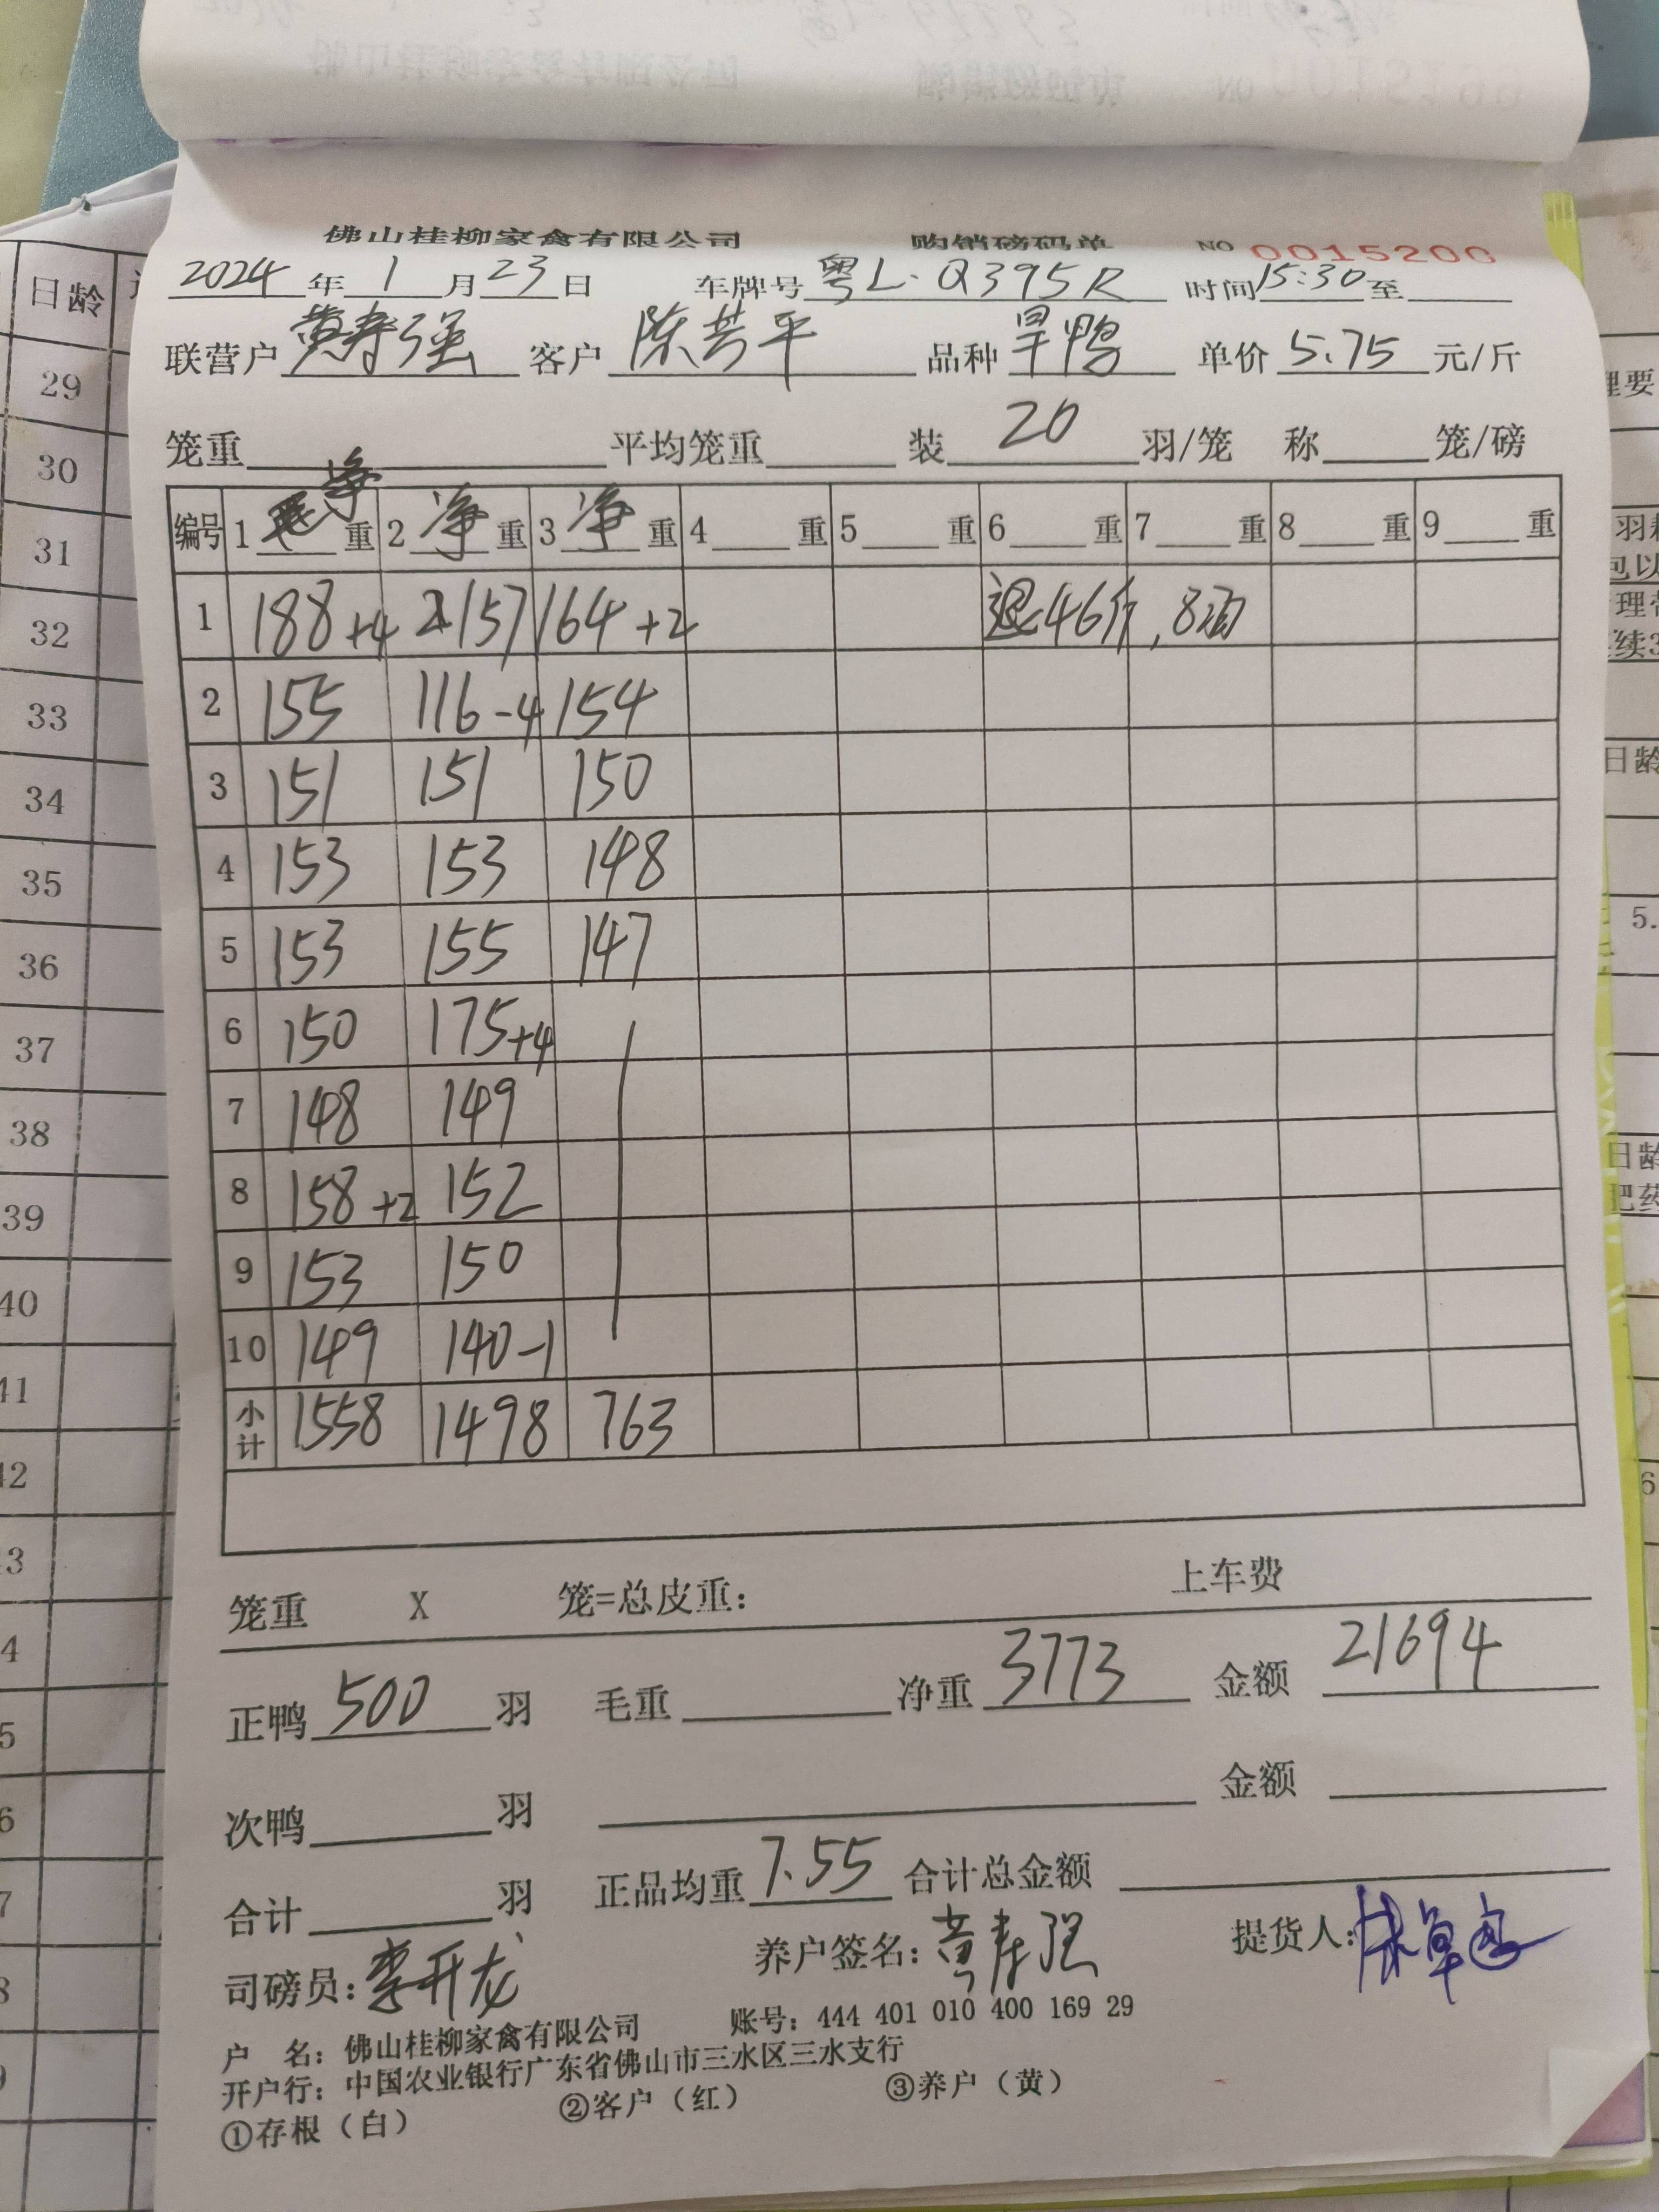 佛山桂柳家禽有限公司 购销磅码单 NO 0015200
2024年1月23日 车牌号 粤L·Q395R 时间 15:30 至
联营户 黄寿强 客户 陈芳平 品种 旱鸭 单价 5.75 元/斤
笼重 平均笼重 装 20 羽/笼 称 笼/磅
编号 1 净 重 2 净 重 3 净 重 4 重 5 重 6 重 7 重 8 重 9 重
1 188+4 157 164+2 退46斤,8羽
2 155 116-4 154
3 151 151 150
4 153 153 148
5 153 155 147
6 150 175+4
7 148 149
8 158+2 152
9 153 150
10 149 140-1
小计 1558 1498 763
笼重 X 笼=总皮重: 上车费
正鸭 500 羽 毛重 净重 3773 金额 21694
次鸭 羽 金额
合计 羽 正品均重 7.55 合计总金额
司磅员: 李开龙 养户签名: 黄寿强 提货人:
户 名: 佛山桂柳家禽有限公司 账号: 444 401 010 400 169 29
开户行: 中国农业银行广东省佛山市三水区三水支行
①存根(白) ②客户(红) ③养户(黄)
日龄
29
30
31
32
33
34
35
36
37
38
39
40
41
42